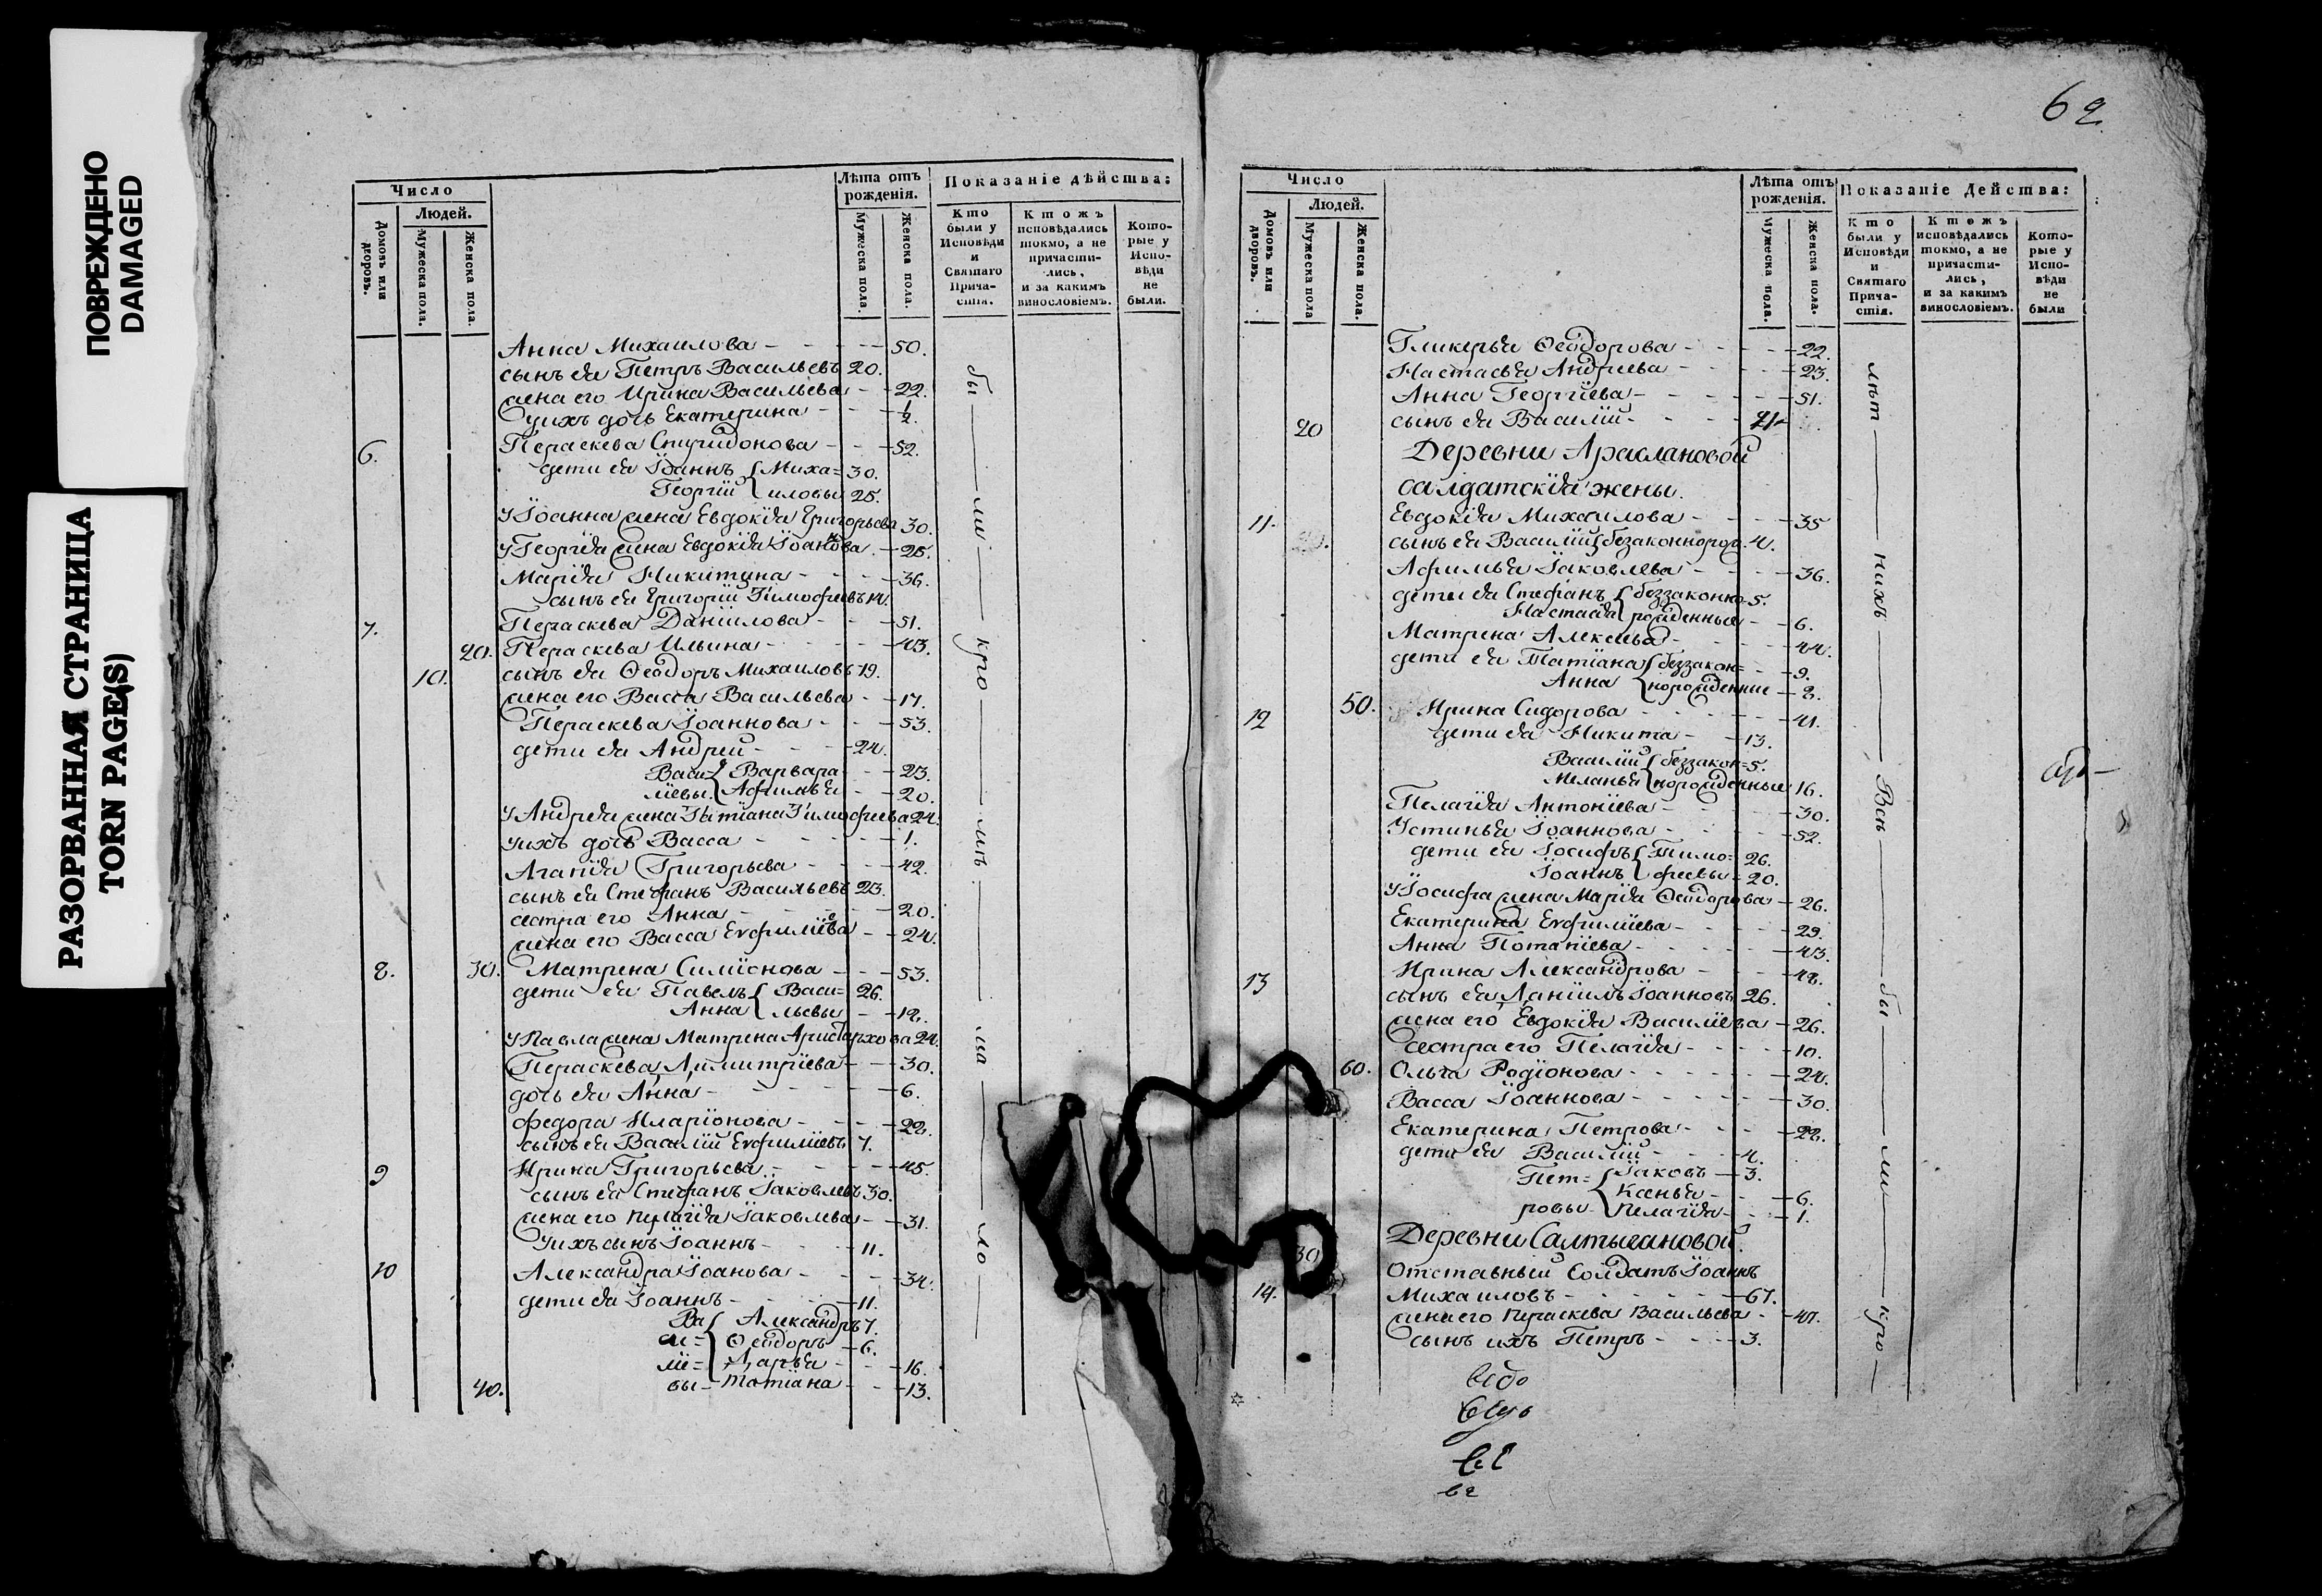 ПОВРЕЖДЕНО
DAMAGED
РАЗОРВАННАЯ СТРАНИЦА
TORN PAGE(S)
Число
Людей.
Домовъ или дворовъ.
Мужеска пола.
Женска пола.
Лѣта отъ рожденія.
Мужеска пола
Женска пола.
Показаніе дѣйства:
Кто были у Исповѣди и Святаго Прича-стія.
Ктожъ исповѣдались токмо, а не причасти-лись, и за какимъ винословіемъ.
Кото-рые у Испо-вѣди не были.
Анна Михаилова - 50.
сынъ ея Петръ Васильевъ 20.
жена его Ирина Васильева - 22.
у ихъ дочь Екатерина - 1/2.
6. Параскева Спиридонова - 52.
дети ея Іоаннъ { Миха= 30.
Георгій { иловы 25.
У Іоанна жена Евдокія Григорьева 30.
У Георгія жена Евдокія Іоаннова - 25.
Марія Никитина - 36.
сынъ ея Григорій Тимофеевъ 14.
7. Параскева Даніилова - 51.
20. Параскева Ильина - 43.
10. сынъ ея Ѳеодоръ Михаиловъ 19.
жена его Васса Васильева - 17.
Параскева Іоаннова - 53.
дети ея Андрей - 24.
Васи { Варвара - 23.
лïевы. { Афимья - 20.
У Андрея жена Татіана Тимофеева 24.
у ихъ дочь Васса - 1.
Агапія Григорьева - 42.
сынъ ея Стефанъ Васильевъ 23.
сестра его Анна - 20.
жена его Васса Евфиміева - 24.
8. 30. Матрена Симіонова - 53.
дети ея Павелъ { Васи= 26.
Анна { льевы - 12.
У Павла жена Матрена Аристархова 24.
Параскева Димитріева - 30.
дочь ея Анна - 6.
Федора Иларіонова - 28.
сынъ ея Василій Евфиміевъ 7.
9 Ирина Григорьева - 45.
сынъ ея Стефанъ Іаковлевъ 30.
жена его Пелагія Іаковлева - 31.
У ихъ сынъ Іоаннъ - 11.
10 Александра Іоанова - 34.
дети ея Іоаннъ - 11.
Ва { Александръ 7.
си= { Ѳеодоръ - 6.
лі= { Дарья - 16.
40. вы - Татіана - 13.
бы — ли — кро — мѣ — ма — ло —
62
Число
Людей.
Домовъ или дворовъ.
Мужеска пола
Женска пола.
Лѣта отъ рожденія.
Мужеска пола.
Женска пола.
Показаніе Действа:
Кто были у Исповѣди и Святаго Прича-стія.
Ктожъ исповѣдались токмо, а не причасти-лись, и за какимъ винословіемъ.
Кото-рые у Испо-вѣди не были
Гликерья Ѳеодорова - 22.
Настасья Андреева - 23.
Анна Георгіева - 51.
20 сынъ ея Василій - 21
Деревни Араслановой
салдатскія жены.
11. Евдокія Михаилова - 35
сынъ ея Василій { безаконнорож. 4.
Афимья Іаковлева - 36.
дети ея Стефанъ { беззаконно- 5.
Настасія { рожденные - 6.
Матрена Алексеева - 44.
дети ея Татіана { беззакон= - 9.
Анна { норожденние - 8.
12 50. Ирина Сидорова - 41.
дети ея Никита - 13.
Василій { беззакон= 5.
Меланья { норожденные 16.
Пелагія Антоніева - 30.
Устинья Іоаннова - 52.
дети ея Іосифъ { Тимо= 26.
Іоаннъ { феевы - 20.
У Іосифа жена Марія Ѳеодорова - 26.
Екатерина Евфиміева - 29.
Анна Потапіева - 43.
13 Ирина Александрова - 48.
сынъ ея Даніилъ Іоанновъ 26.
жена его Евдокія Василіева - 26.
сестра его Пелагія - 10.
60. Ольга Родіонова - 24.
Васса Іоаннова - 30.
Екатерина Петрова - 28.
дети ея Василій - 4.
Пет= { Іаковъ - 3.
Ксенья - 6.
ровы - { Пелагія - 1.
Деревни Салтыгановой.
30 Отставный Солдатъ Іоаннъ
14. Михаиловъ - 67.
жена его Параскева Васильева - 47.
сынъ ихъ Петръ - 3.
лѣт — нихъ — Всѣ — бы — ли — кро —